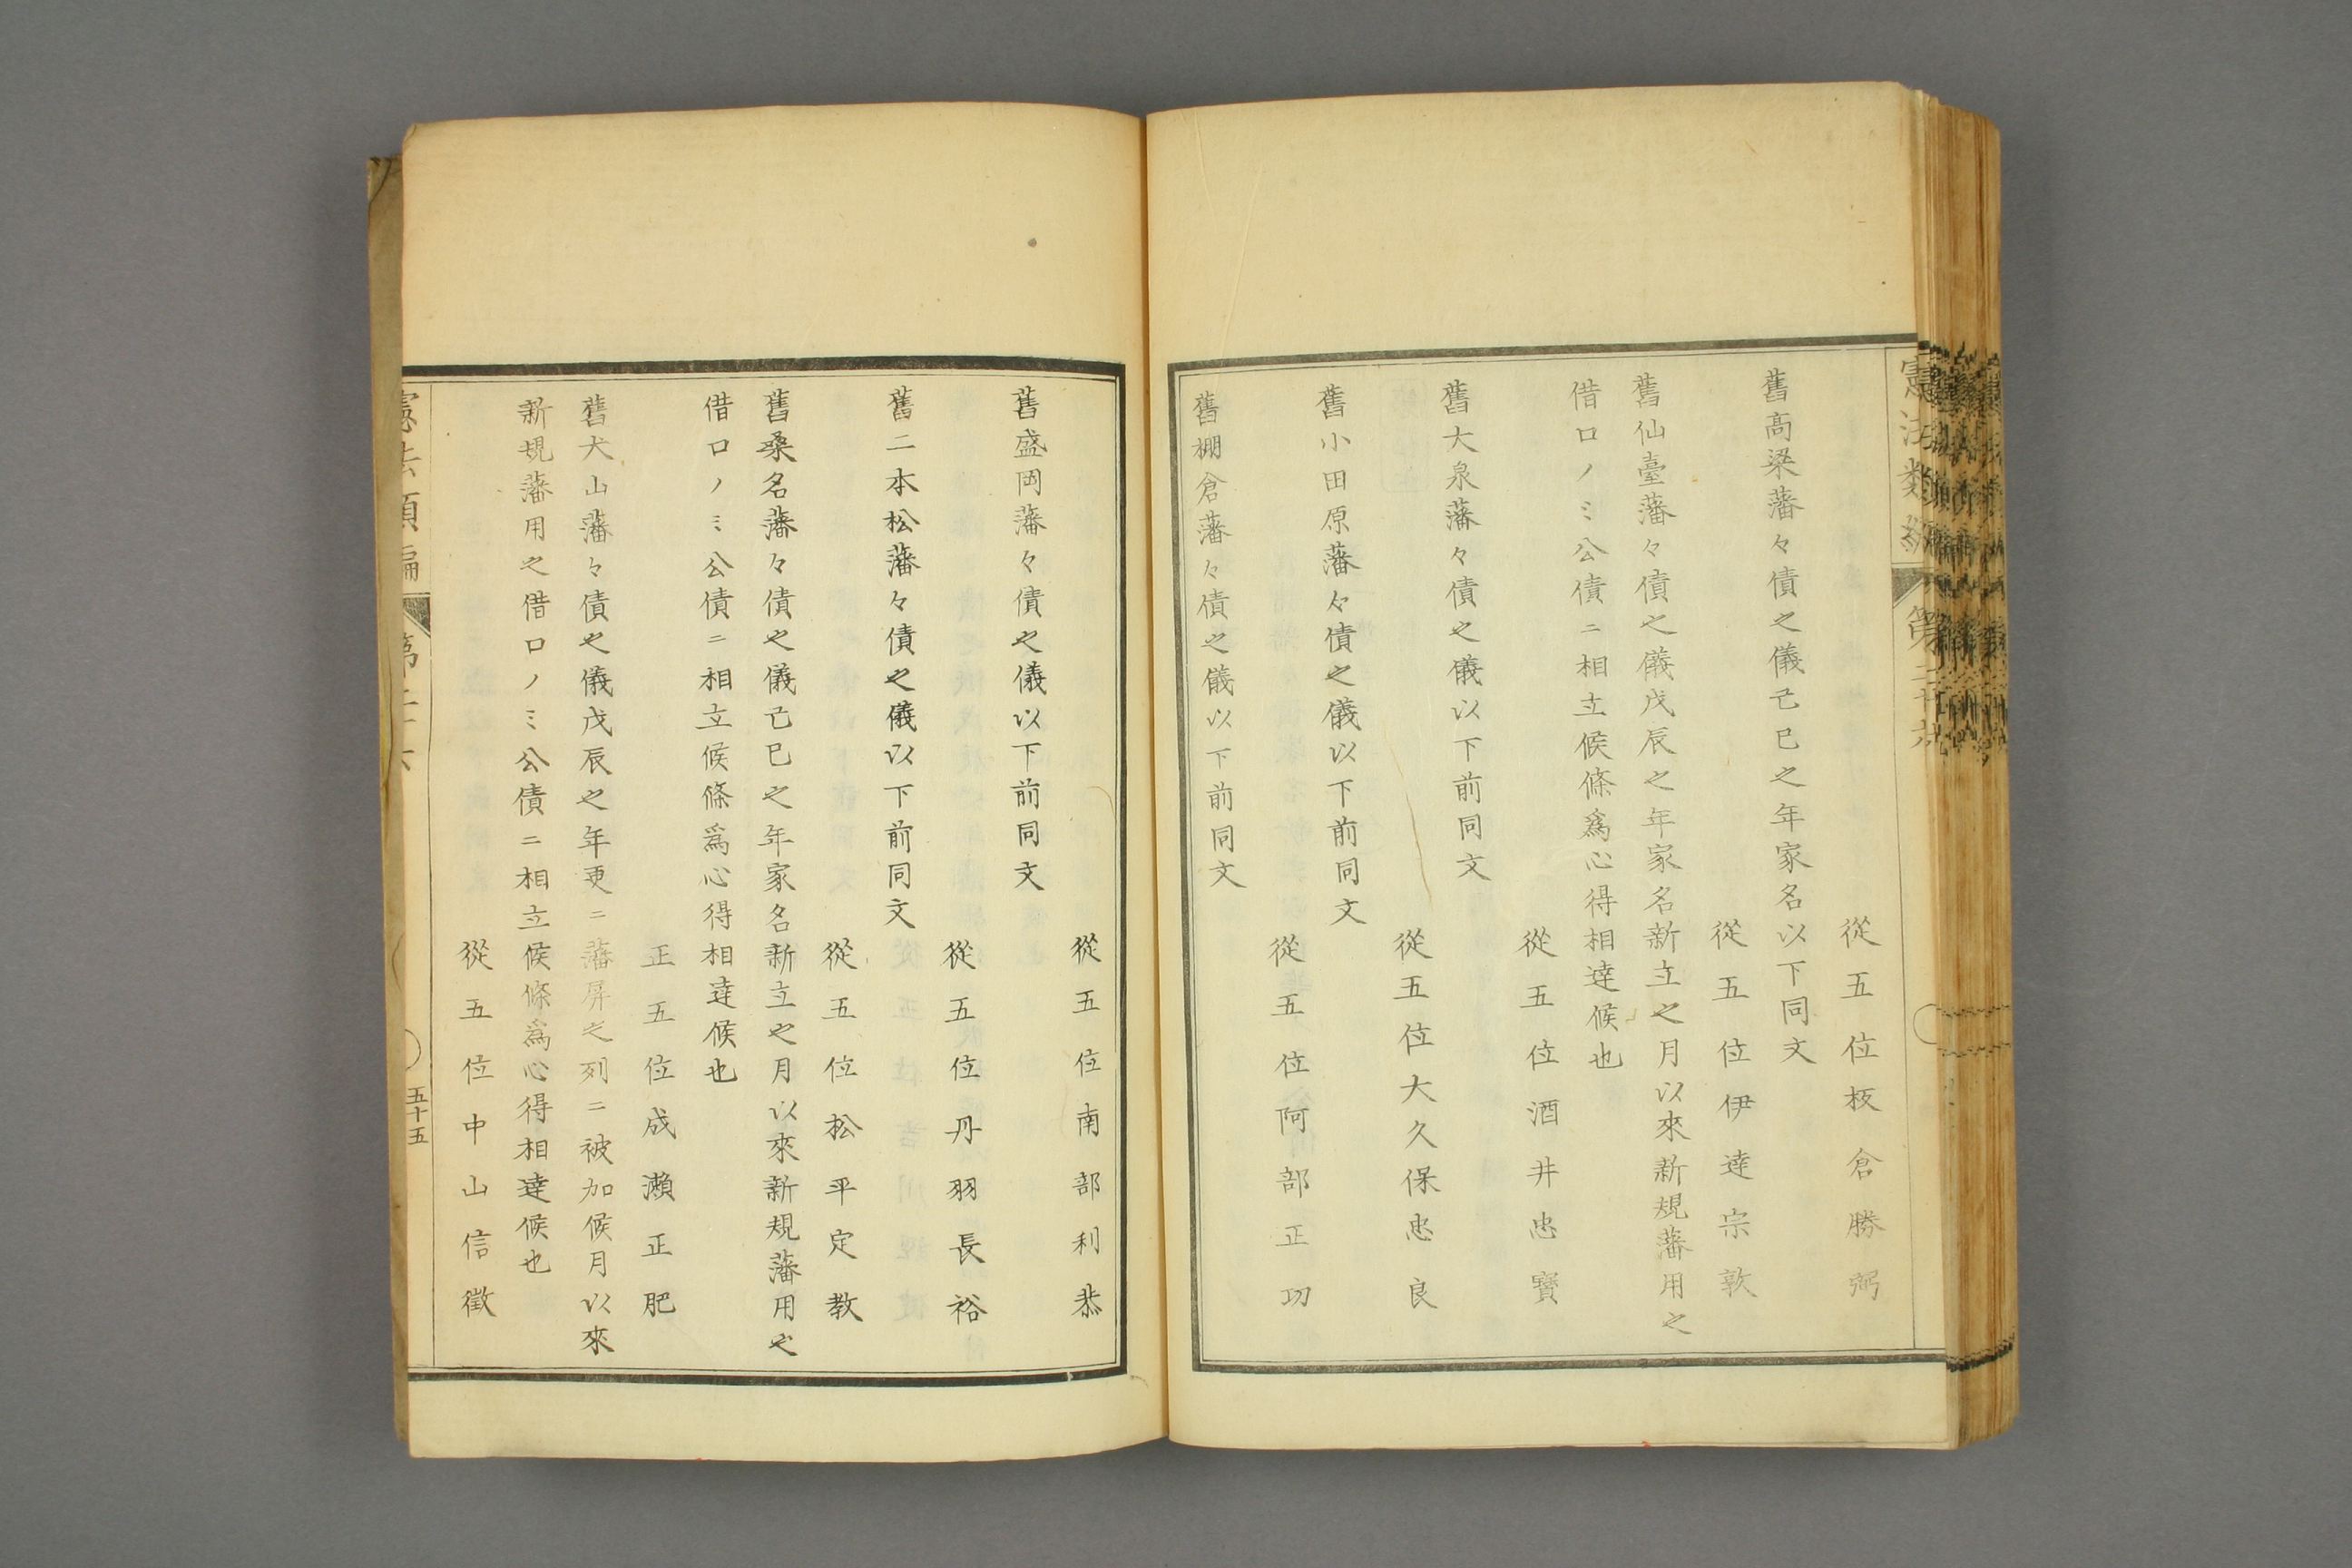 憲法類編 第二十六
從五位板倉勝弼
舊高梁藩々債之儀己巳之年家名以下同文
從五位伊達宗敦
舊仙臺藩々債之儀戊辰之年家名新立之月以來新規藩用之
借口ノミ公債ニ相立候條爲心得相達候也
從五位酒井忠寶
舊大泉藩々債之儀以下前同文
從五位大久保忠良
舊小田原藩々債之儀以下前同文
從五位阿部正功
舊棚倉藩々債之儀以下前同文
從五位南部利恭
舊盛岡藩々債之儀以下前同文
從五位丹羽長裕
舊二本松藩々債之儀以下前同文
從五位松平定教
舊桑名藩々債之儀己巳之年家名新立之月以來新規藩用之
借口ノミ公債ニ相立候條爲心得相達候也
正五位成瀬正肥
舊犬山藩々債之儀戊辰之年更ニ藩屏之列ニ被加候月以來
新規藩用之借口ノミ公債ニ相立候條爲心得相達候也
從五位中山信徵
憲法類編 第二十六 五十五